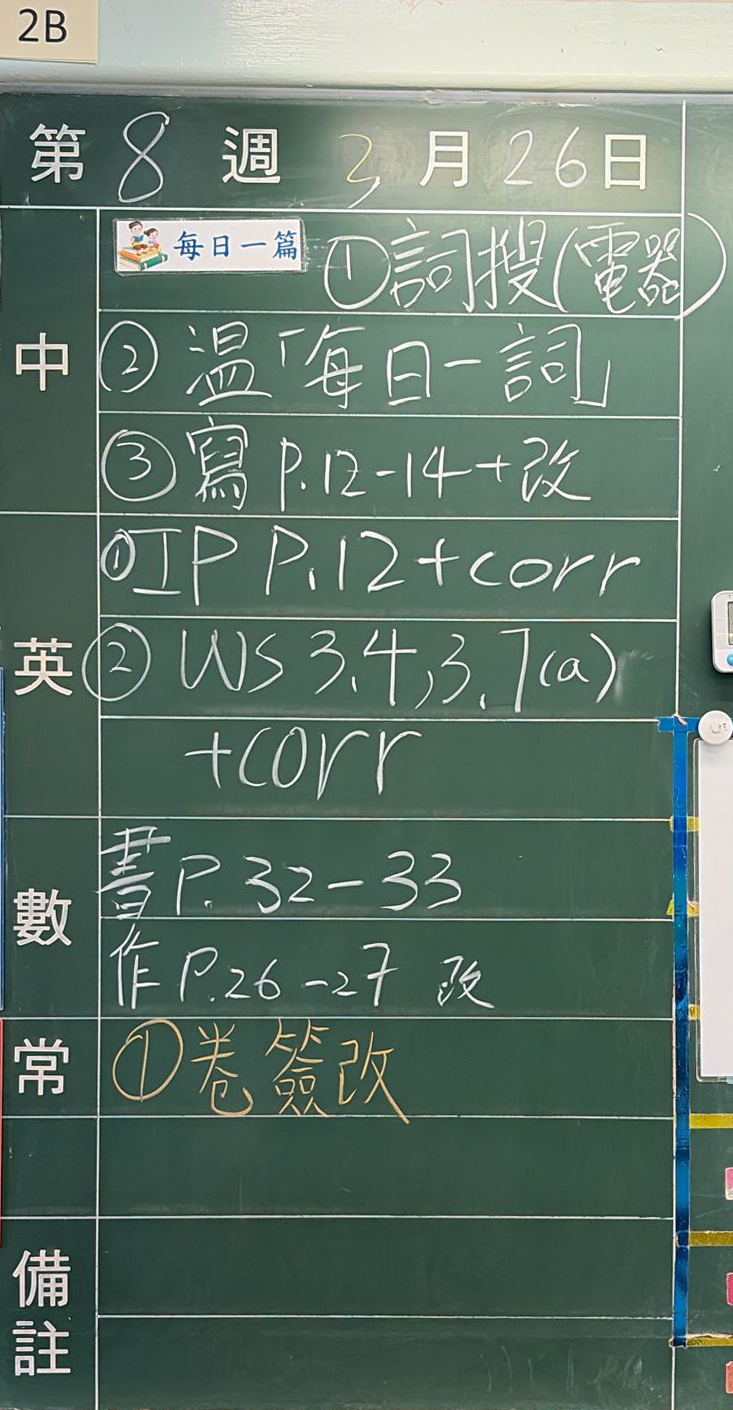 2B
第 8 週 3 月 26 日
中
每日一篇 ①詞搜(電器)
② 溫「每日一詞」
③ 寫 P.12-14+改
英
①IP P.12+corr
② WS 3.4,3.7(a)
+corr
數
書 P. 32-33
作 P.26-27 改
常
①卷簽改
備註